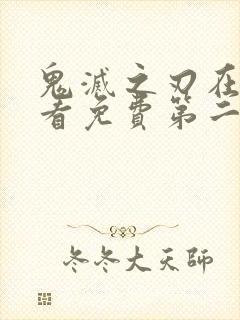 鬼滅之刃在
看免費第二
冬冬大天師